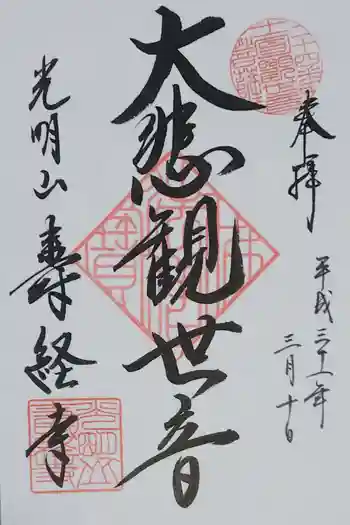 奉拝
平成三十一年
三月十日
大悲観世音
光明山
壽経寺